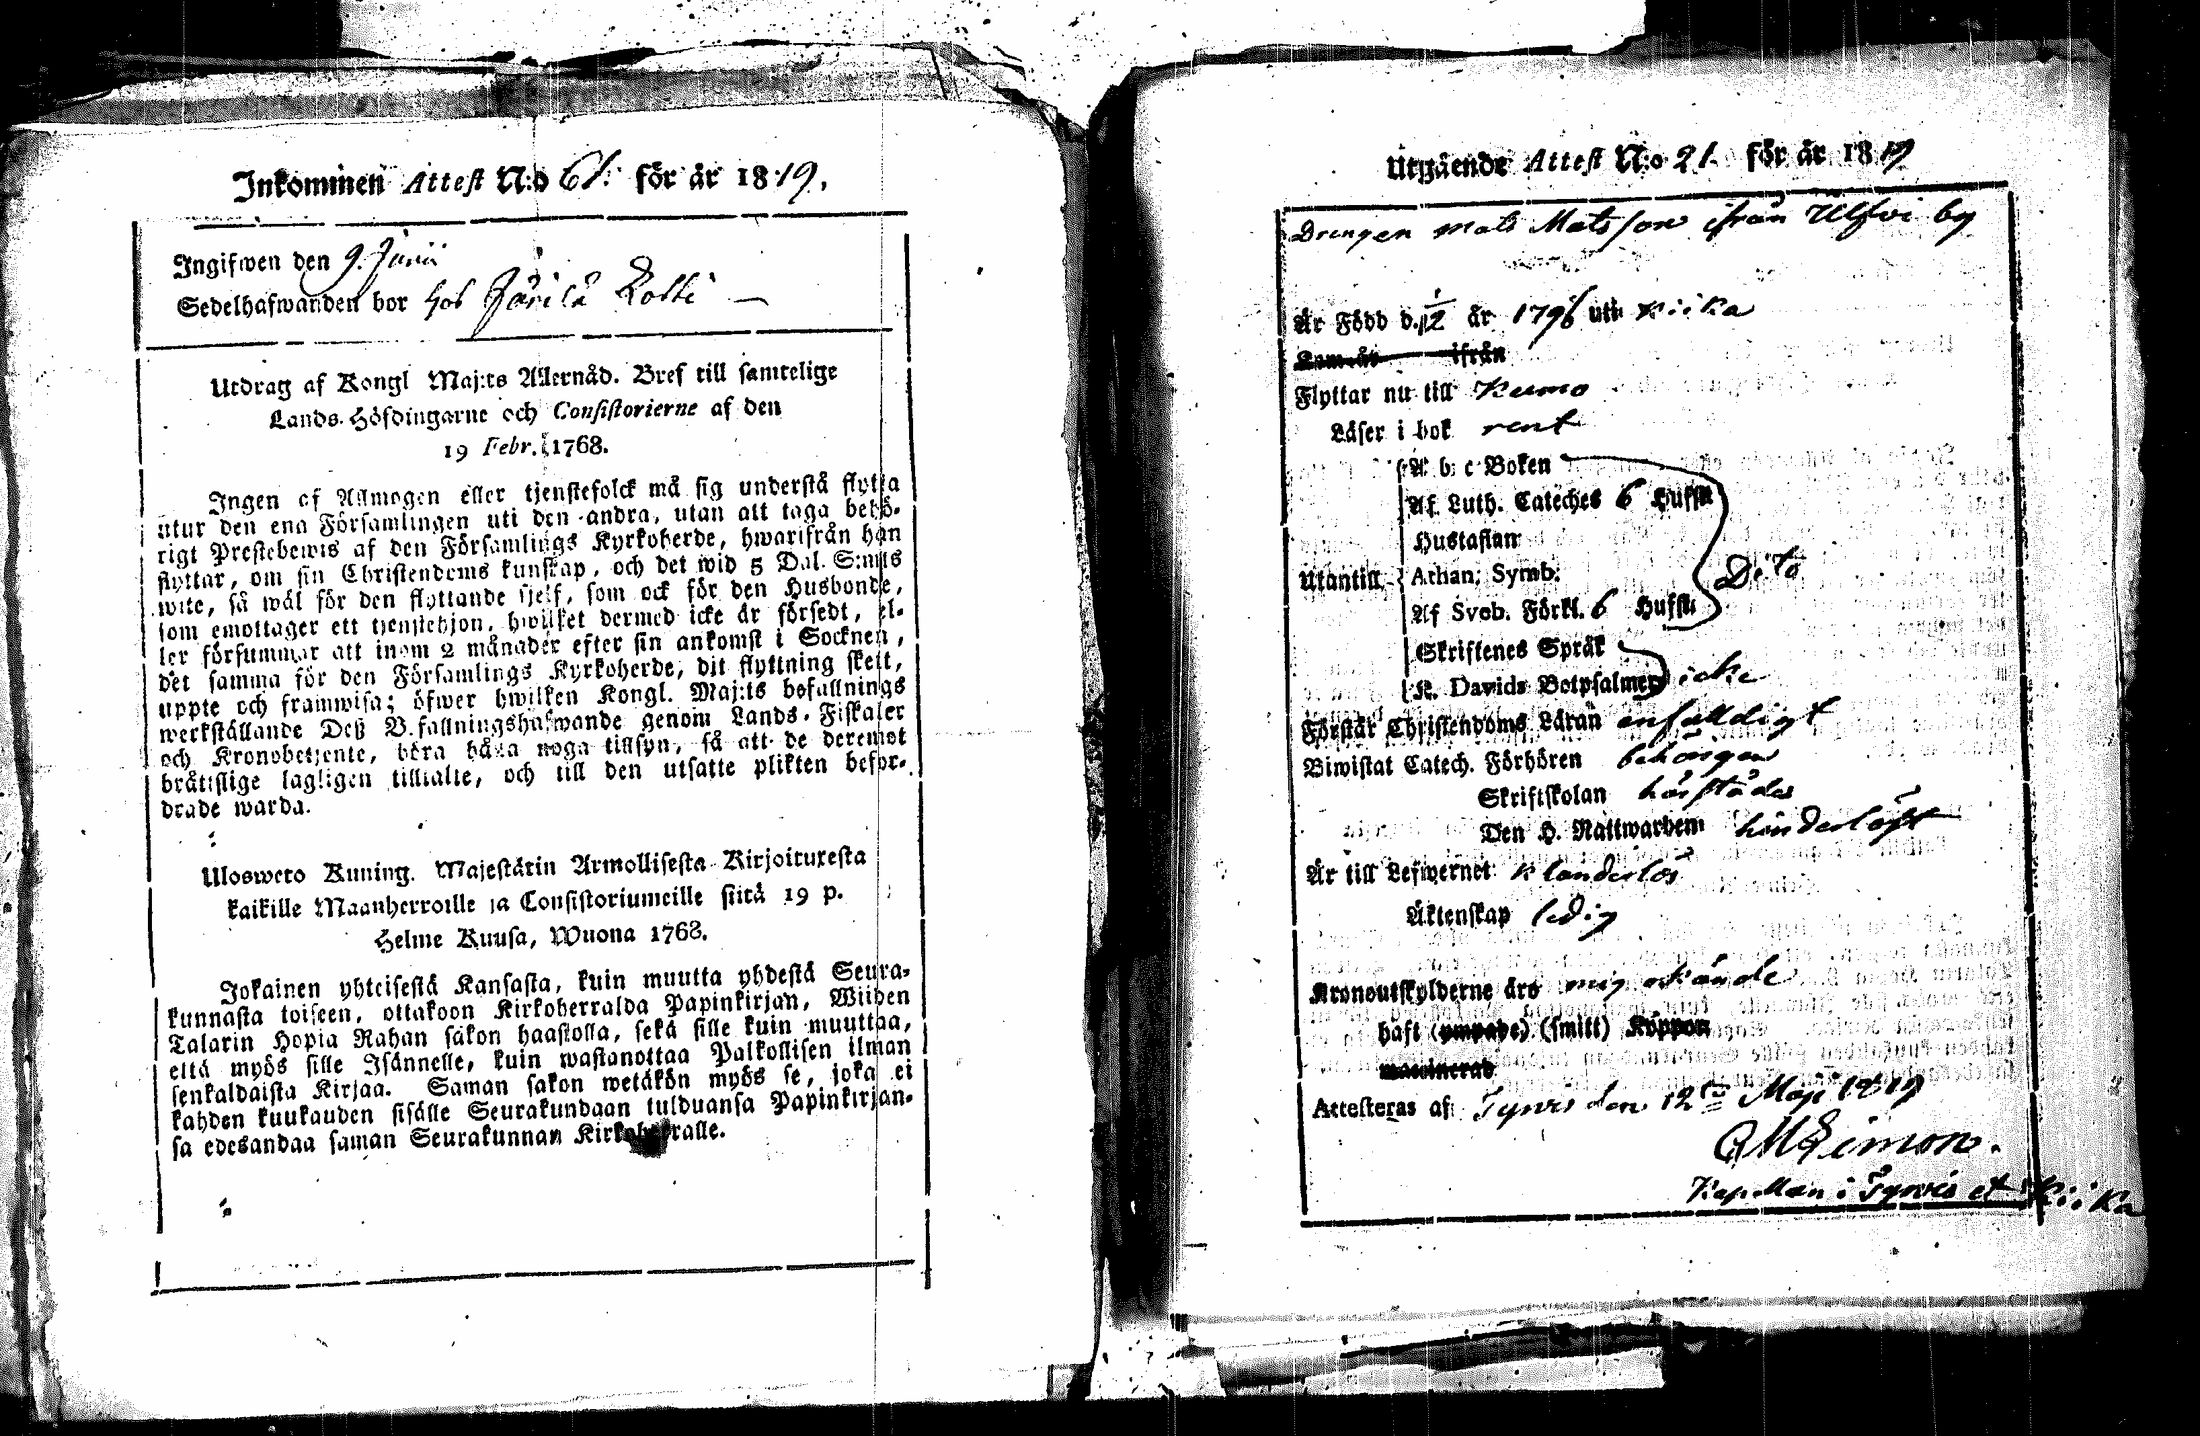 Inkommen Attest N:o 61. för år 1819.
Ingifwen den 9. Junii
Sedelhafwanden bor hos
Utdrag af Kongl Maj:ts Allernåd. Bref till samtelige
Lands-Höfdingarne och Consistorierne af den
19 Febr. 1768.
Ingen af Allmogen eller tjenstefolck må sig understå flytta
utur den ena Församlingen uti den andra, utan att taga behö-
rigt Prestebewis af den Församlings Kyrkoherde, hwarifrån han
flyttar, om sin Christendoms kunskap, och det wid 5 Dal. S:mts
wite, så wäl för den flyttande sjelf, som ock för den Husbonde,
som emottager ett tjenstehjon, hwilket dermed icke är försedt, el-
ler försummar att inom 2 månader efter sin ankomst i Socknen,
det samma för den Församlings Kyrkoherde, dit flyttning skett,
uppte och framwisa; öfwer hwilken Kongl. Maj:ts befallnings
werkställande Deß Befallningshafwande genom Lands-Fiskaler
och Kronobetjente, böra hafwa noga tillsyn, så att de deremot
bråttslige lagligen tilltalte, och till den utsatte plikten befor-
drade warda.
Ulosweto Kuning. Majestätin Armollisesta Kirjoituxesta
kaikille Maanherroille ja Consistoriumeille siitä 19 p.
Helme Kuusa, Wuona 1768.
Jokainen yhteisestä Kansasta, kuin muutta yhdestä Seura-
kunnasta toiseen, ottakoon Kirkoherralda Papinkirjan, Wiiden
Talarin Hopia Rahan sakon haastolla, sekä sille kuin muuttaa,
että myös sille Isännelle, kuin wastanottaa Palkollisen ilman
senkaldaista Kirjaa. Saman sakon wetäkön myös se, joka ei
kahden kuukauden sisälle Seurakundaan tulduansa Papinkirjan-
sa edesandaa saman Seurakunnan Kirkoherralle.
Utgående Attest N:o 21. för år 1819
Drengen Mats Matsson ifrån Ulfvi by
Är Född d. 1/12 år 1796 uti Kiika
Kom år ifrån
Flyttar nu till Kumo
Läser i bok rent
A b c Boken
Af Luth. Cateches 6 Hufst
Hustaflan
Utantill Athan. Symb. Dito
Af Sveb. Förkl. 6 Hufst
Skriftenes Språk
K. Davids Botpsalmer icke
Förstår Christendoms Läran enfalldigt
Biwistat Catech. Förhören behörigen
Skriftskolan härstädes
Den H. Nattwarden hinderlöst
Är till Lefwernet klanderlös
Äktenskap ledig
Kronoutskylderne äro mig okände
haft (ympade) (smitt) Koppor
waccinerad
Attesteras af Tyrvis den 12te Maji 1819
Simon.
Kapellan i Tyrvis et Kiika